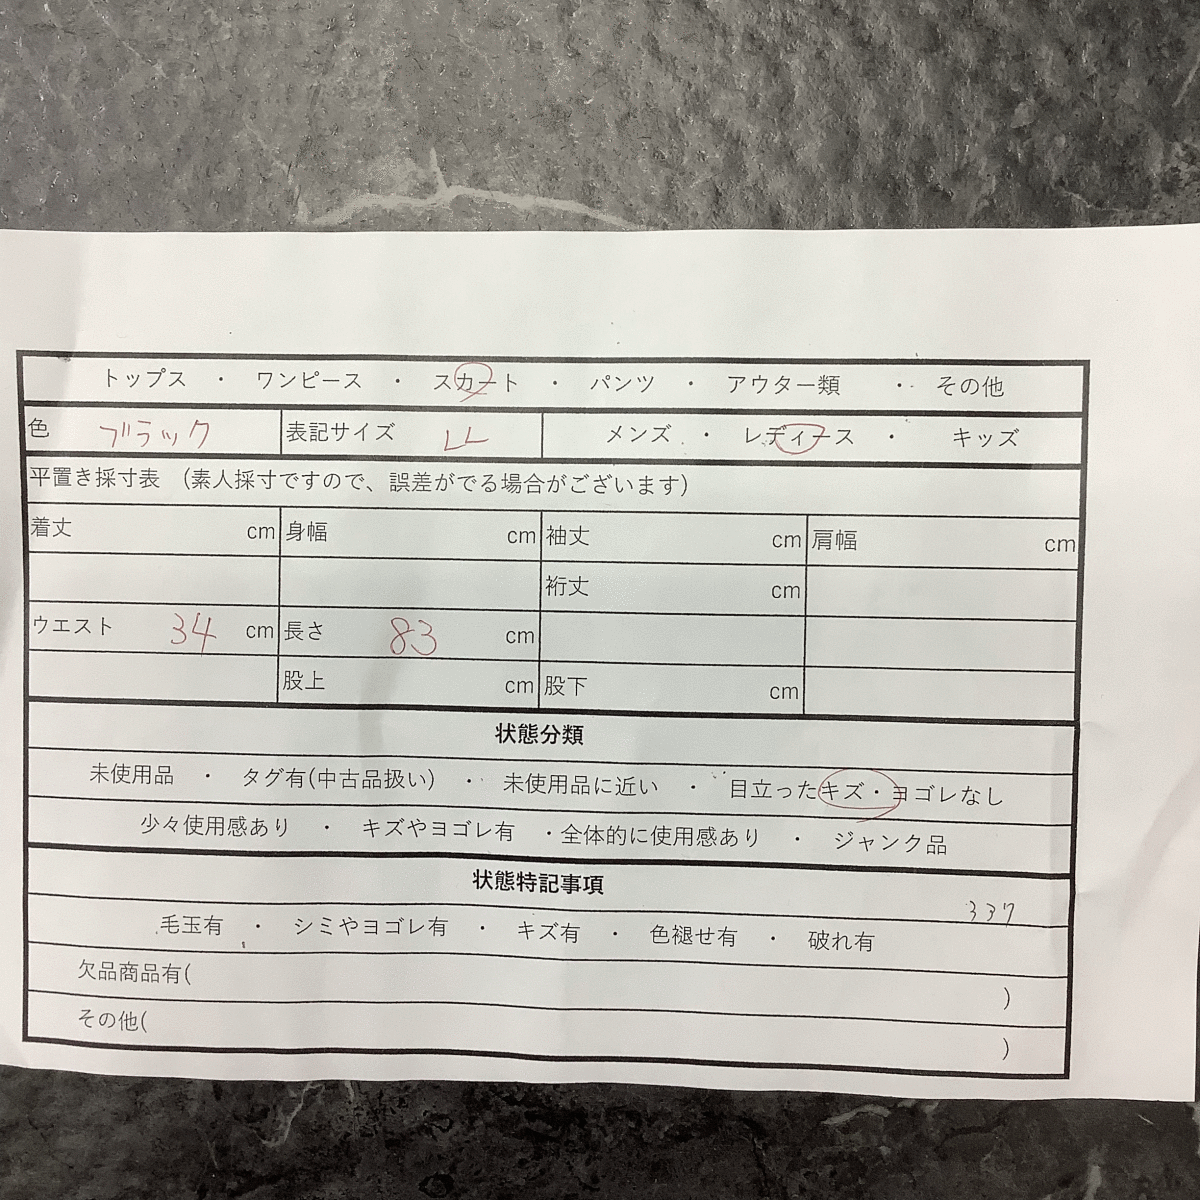 トップス ・ ワンピース ・ スカート ・ パンツ ・ アウター類 ・ その他
色 ブラック 表記サイズ LL メンズ ・ レディース ・ キッズ
平置き採寸表 (素人採寸ですので、誤差がでる場合がございます)
着丈 cm 身幅 cm 袖丈 cm 肩幅 cm
裄丈 cm
ウエスト 34 cm 長さ 83 cm
股上 cm 股下 cm
状態分類
未使用品 ・ タグ有(中古品扱い) ・ 未使用品に近い ・ 目立ったキズ・ヨゴレなし
少々使用感あり ・ キズやヨゴレ有 ・全体的に使用感あり ・ ジャンク品
状態特記事項
337
毛玉有 ・ シミやヨゴレ有 ・ キズ有 ・ 色褪せ有 ・ 破れ有
欠品商品有( )
その他( )